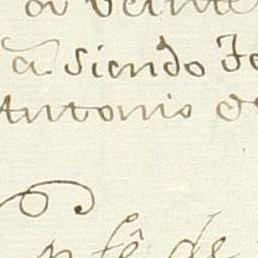 or veinte
a siendo Te
Antonio de
n fê de